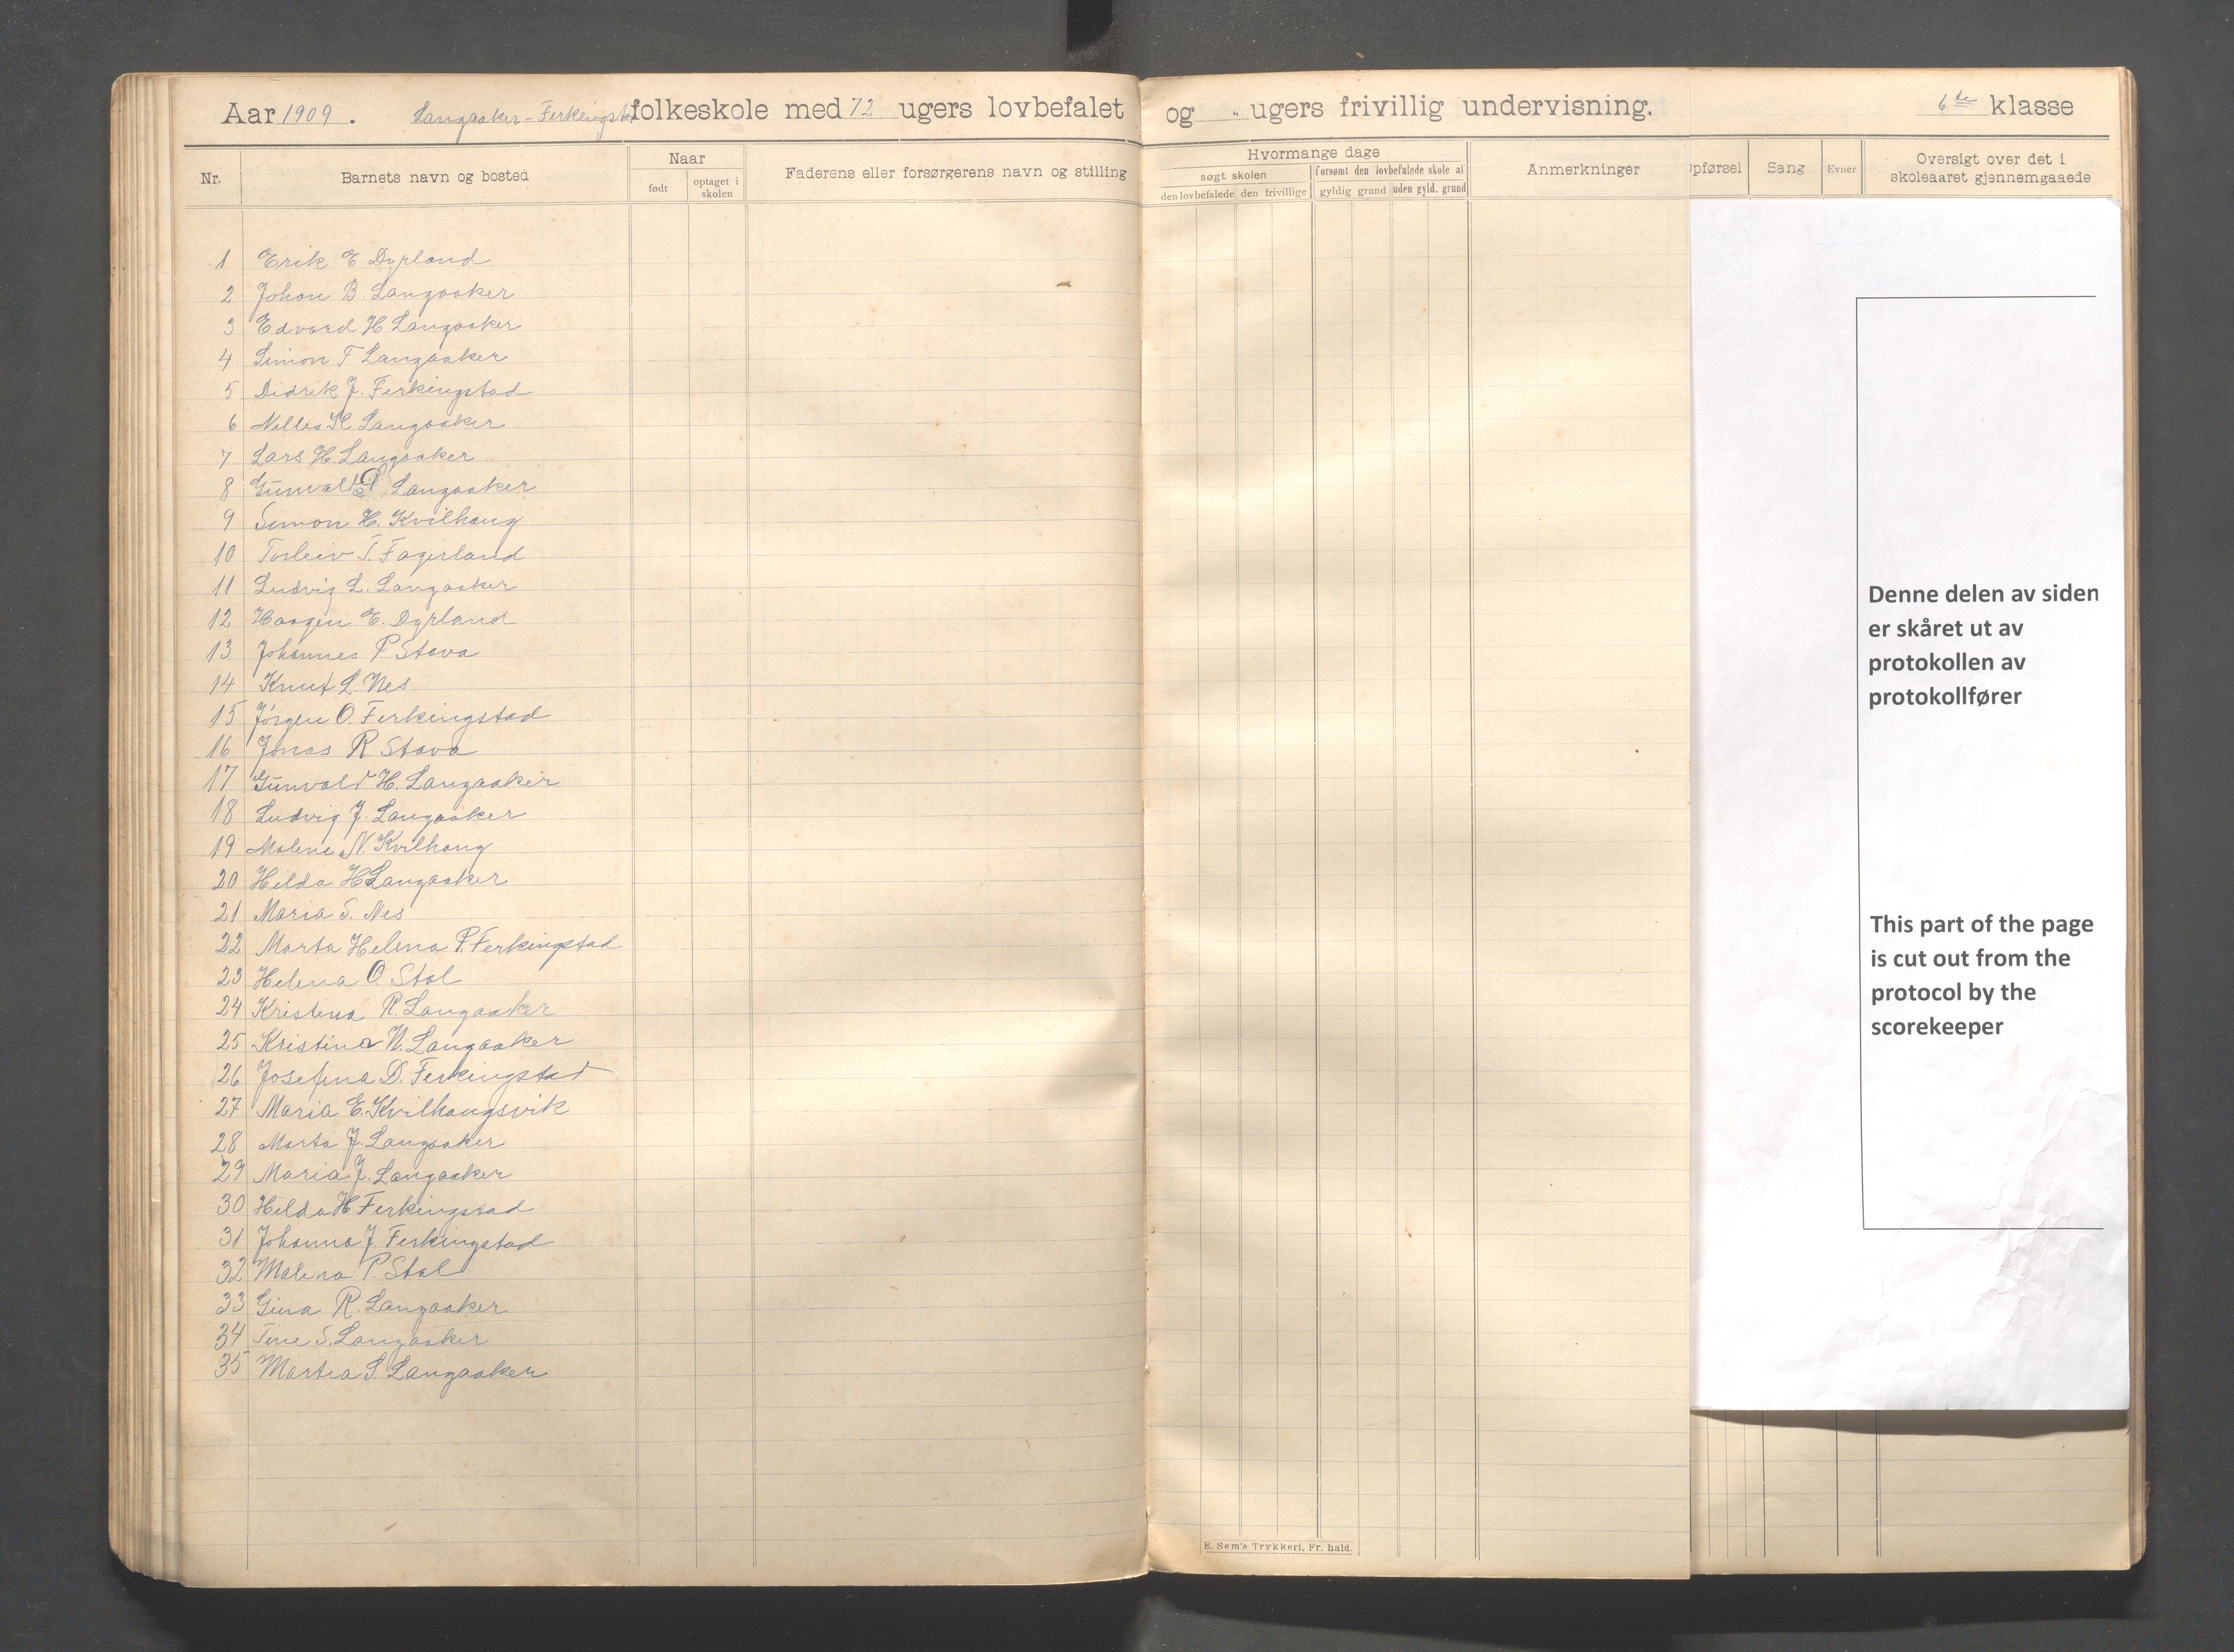 Aar 1909. Langaaker-Ferkingstad folkeskole med 12 ugers lovbefalet og " ugers frivillig undervisning. 6te klasse
Nr. Barnets navn og bosted Naar Faderens eller forsørgerens navn og stilling
født optaget i skolen
Hvormange dage Anmerkninger
søgt skolen forsømt den lovbefalede skole af
den lovbefalede den frivillige gyldig grund uden gyld. grund
Opførsel Sang Evner Oversigt over det i
skoleaaret gjennemgaaede
1 Erik E Dyrland
2 Johan B. Langaaker
3 Edvard H Langaaker
4 Simon T Langaaker
5 Didrik J. Ferkingstad
6 Langaaker
7 Lars H Langaaker
8 Gunvald Langaaker
9 Simon H. Kvilhaug
10 Torleiv T. Fagerland
11 Ludvig L. Langaaker
12 Haagen E. Dyrland
13 Johannes P Stava
14 Knut L. Nes
15 Jørgen O. Ferkingstad
16 Jonas R. Stava
17 Gunvald H. Langaaker
18 Ludvig J. Langaaker
19 Malene N. Kvilhaug
20 Hilda H Langaaker
21 Maria S. Nes
22 Marta Helena P. Ferkingstad
23 Helena O Stol
24 Kristena R. Langaaker
25 Kristina N. Langaaker
26 Josefina D. Ferkingstad
27 Maria E. Kvilhaugsvik
28 Marta J. Langaaker
29 Maria J. Langaaker
30 Hilda H Ferkingstad
31 Johanna J. Ferkingstad
32 Malena P. Stol
33 Gina R. Langaaker
34 Tine S. Langaaker
35 Martea S Langaaker
E. Sem's Trykkeri, Fr. hald.
Denne delen av siden
er skåret ut av
protokollen av
protokollfører
This part of the page
is cut out from the
protocol by the
scorekeeper